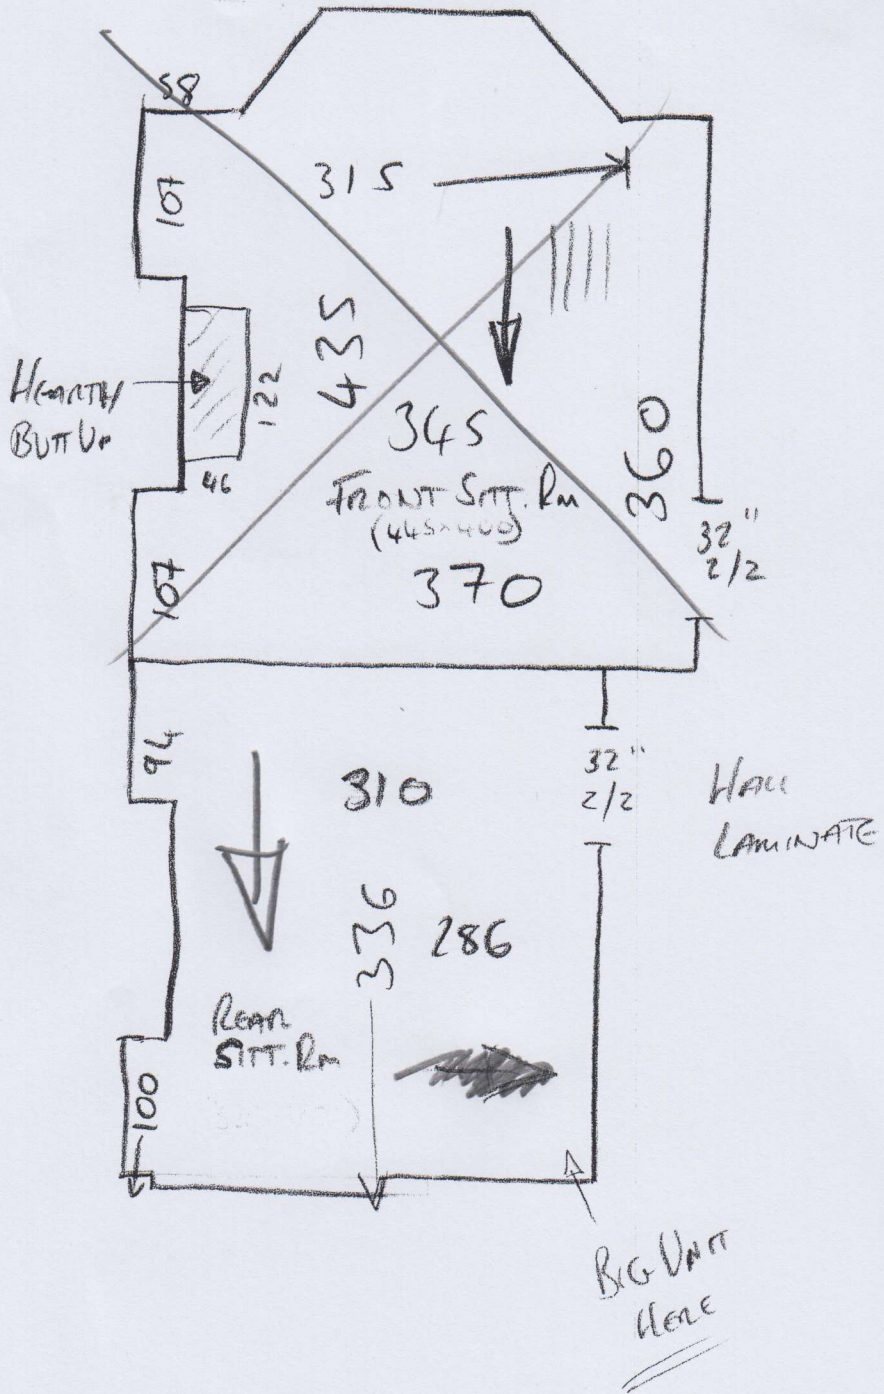 58
315
107
435
HEARTH
BUTT UP
122
46
345
FRONT SITT. RM
(445×400)
370
360
32"
2/2
107
94
310
32"
2/2
HALL
LAMINATE
336
286
REAR
SITT. RM
100
BIG UNIT
HERE